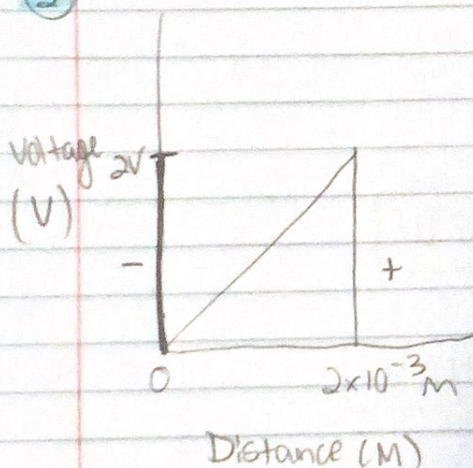 2
Voltage 2V
(V)
- +
0 2×10⁻³ M
Distance (M)